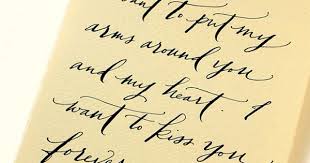 want to put my
arms around you
and my heart. I
want to kiss you
forever